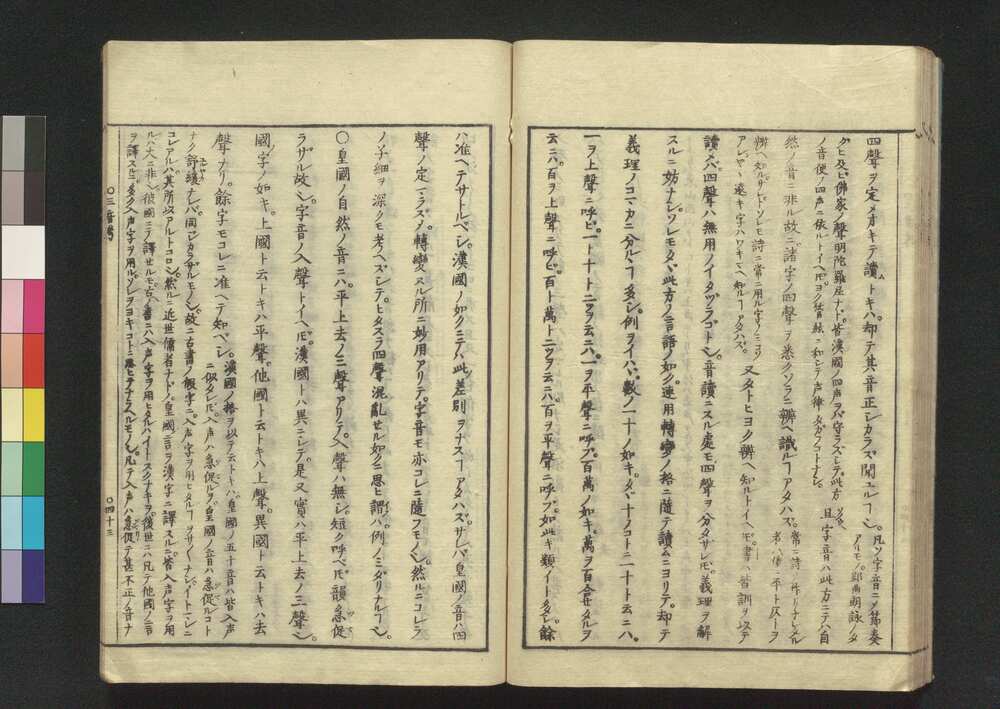 四聲ヲ定メオキテ讀ムトキハ。却テ其音正シカラズ聞ユルヿ也。凡ソ字音ニノ節奏
アルモノ。郢曲朗詠ノタ
グヒ及ビ佛家ノ聲明陀羅尼ナド。皆漢國ノ四声ヲバ守ラズシテ。此方
ノ音便ノ四声ニ依ルトイヘ𪜈。ヨク管絃ニ和シテ声律タガフコトナシ。
且字音ハ此方ニテハ自
然ノ音ニ非ル故ニ。諸字ノ四聲ヲ悉クソラニ辨ヘ識ルヿアタハズ。
常ニ詩ヲ作リナレタル
者ハ偏ニ平ト仄ヲ
辨ヘ知ルサレドソレモ詩ニ常ニ用ル字ノミコソ
アレ。ヤヽ遠キ字ハワキマヘ知ルヿアタハズ。
又タトヒヨク辨ヘ知ルトイヘ𪜈。書ハ皆訓ヲ以テ
讀メバ。四聲ハ無用ノイタヅラゴト也。音讀ニスル處モ四聲ヲ分タザレ𪜈。義理ヲ解
スルニ妨ナシ。ソレモタヾ此方ノ言語ノ如ク。連用轉變ノ格ニ隨テ讀ムニヨリテ。却テ
義理ノコマカニ分ルヿ多シ。例ヲイハヾ。數ノ一十ノ如キ。タヾ十ノコトニ一十ト云ニハ。
一ヲ上聲ニ呼ビ。一ト十ト二ツヲ云ニハ。一ヲ平聲ニ呼ブ。百萬ノ如キ。萬ヲ百合セタルヲ
云ニハ。百ヲ上聲ニ呼ビ。百ト萬ト二ツヲ云ニハ。百ヲ平聲ニ呼ブ。如此キ類イト多シ。餘
ハ准ヘテサトルベシ。漢國ノ如クニテハ。此差別ヲナスヿアタハズ。サレバ皇國ノ音ハ四
聲ノ定マラズノ。轉變スル所ニ妙用アリテ。字音モ亦コレニ隨フモノ也。然ルニコレラ
ノ子細ヲ深クモ考ヘズシテ。ヒタスラ四聲混亂セル如クニ思ヒ謂ハ。例ノミダリナルヿ也。
〇皇國ノ自然ノ音ニハ。平上去ノ三聲アリテ。入聲ハ無シ。短ク呼ベ𪜈。韻急促
ラザル故也。字音ノ入聲トイヘ𪜈。漢國トハ異ニシテ。是又實ハ平上去ノ三聲也。
國字ノ如キ。上國ト云トキハ平聲。他國ト云トキハ上聲。異國ト云トキハ去
聲ナリ。餘字モコレニ准ヘテ知ベシ。
漢國ノ格ヲ以テ云トキハ。皇國ノ五十音ハ皆入声
ニ似タレ𪜈。入声ハ急促ルヲ。皇國ノ音ハ急促ルコト
ナク舒緩ナレバ。同シカラザルモノ也。故ニ古書ノ假字ニ。入声字ヲ用ヒタルヿヲサ〱ナシ。イトマレニ
コレアルハ。其所以アルトコロ也。然ルニ近世儒者ナドノ。皇國言ヲ漢字ニ譯スルニ。皆入声字ヲ用
ルハ大ニ非也。彼國ニテ譯セルモ。古ノ書ニハ入声字ヲ用ヒタルハイトスクナキヲ。後世ニハ凡テ他國ノ言
ヲ譯スルニ。多ク入声字ヲ用ル也。ソレヲヨキコトニ思ヒテナラヘルモノ也。凡テ入声ハ急促テ甚不正ノ音ナ
〇三音考
〇四十三